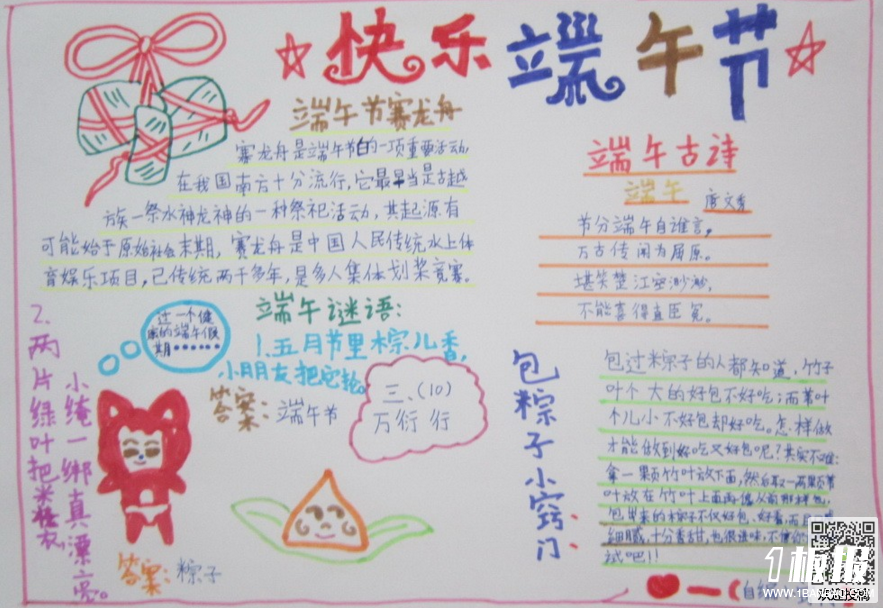 快乐端午节
端午节赛龙舟
赛龙舟是端午节的一项重要活动
在我国南方十分流行,它最早当是古越
族一祭水神龙神的一种祭祀活动,其起源有
可能始于原始社会末期,赛龙舟是中国人民传统水上体
育娱乐项目,已传统两千多年,是多人集体划桨竞赛。
端午古诗
端午
唐文秀
节分端午自谁言,
万古传闻为屈原。
堪笑楚江空渺渺,
不能洗得直臣冤。
过一个健
康的端午假
期······
端午谜语:
1.五月节里棕儿香,
小朋友把它
答案:端午节
三、(10)
万衍 行
2.两片绿叶把米
小绳一绑真漂亮。
答案:粽子
包粽子小窍门:
包过粽子的人都知道,竹子
叶个大的好包不好吃;而苇叶
个儿小不好包却好吃。怎样做
才能做到好吃又好包呢?其实不难:
拿一颗竹叶放下面,然后取一两颗苇
叶放在竹叶上面再像从前那样包,
包出来的粽子不仅好包、好看,而且
细腻,十分香甜,也很滋味,不
试吧!!
1板报
WWW.1BANBAO.COM
欢迎投稿